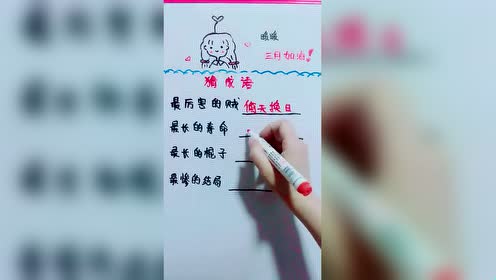 暖暖
三月加油！
猜成语
最厉害的贼 偷天换日
最长的寿命
最长的棍子
最惨的结局